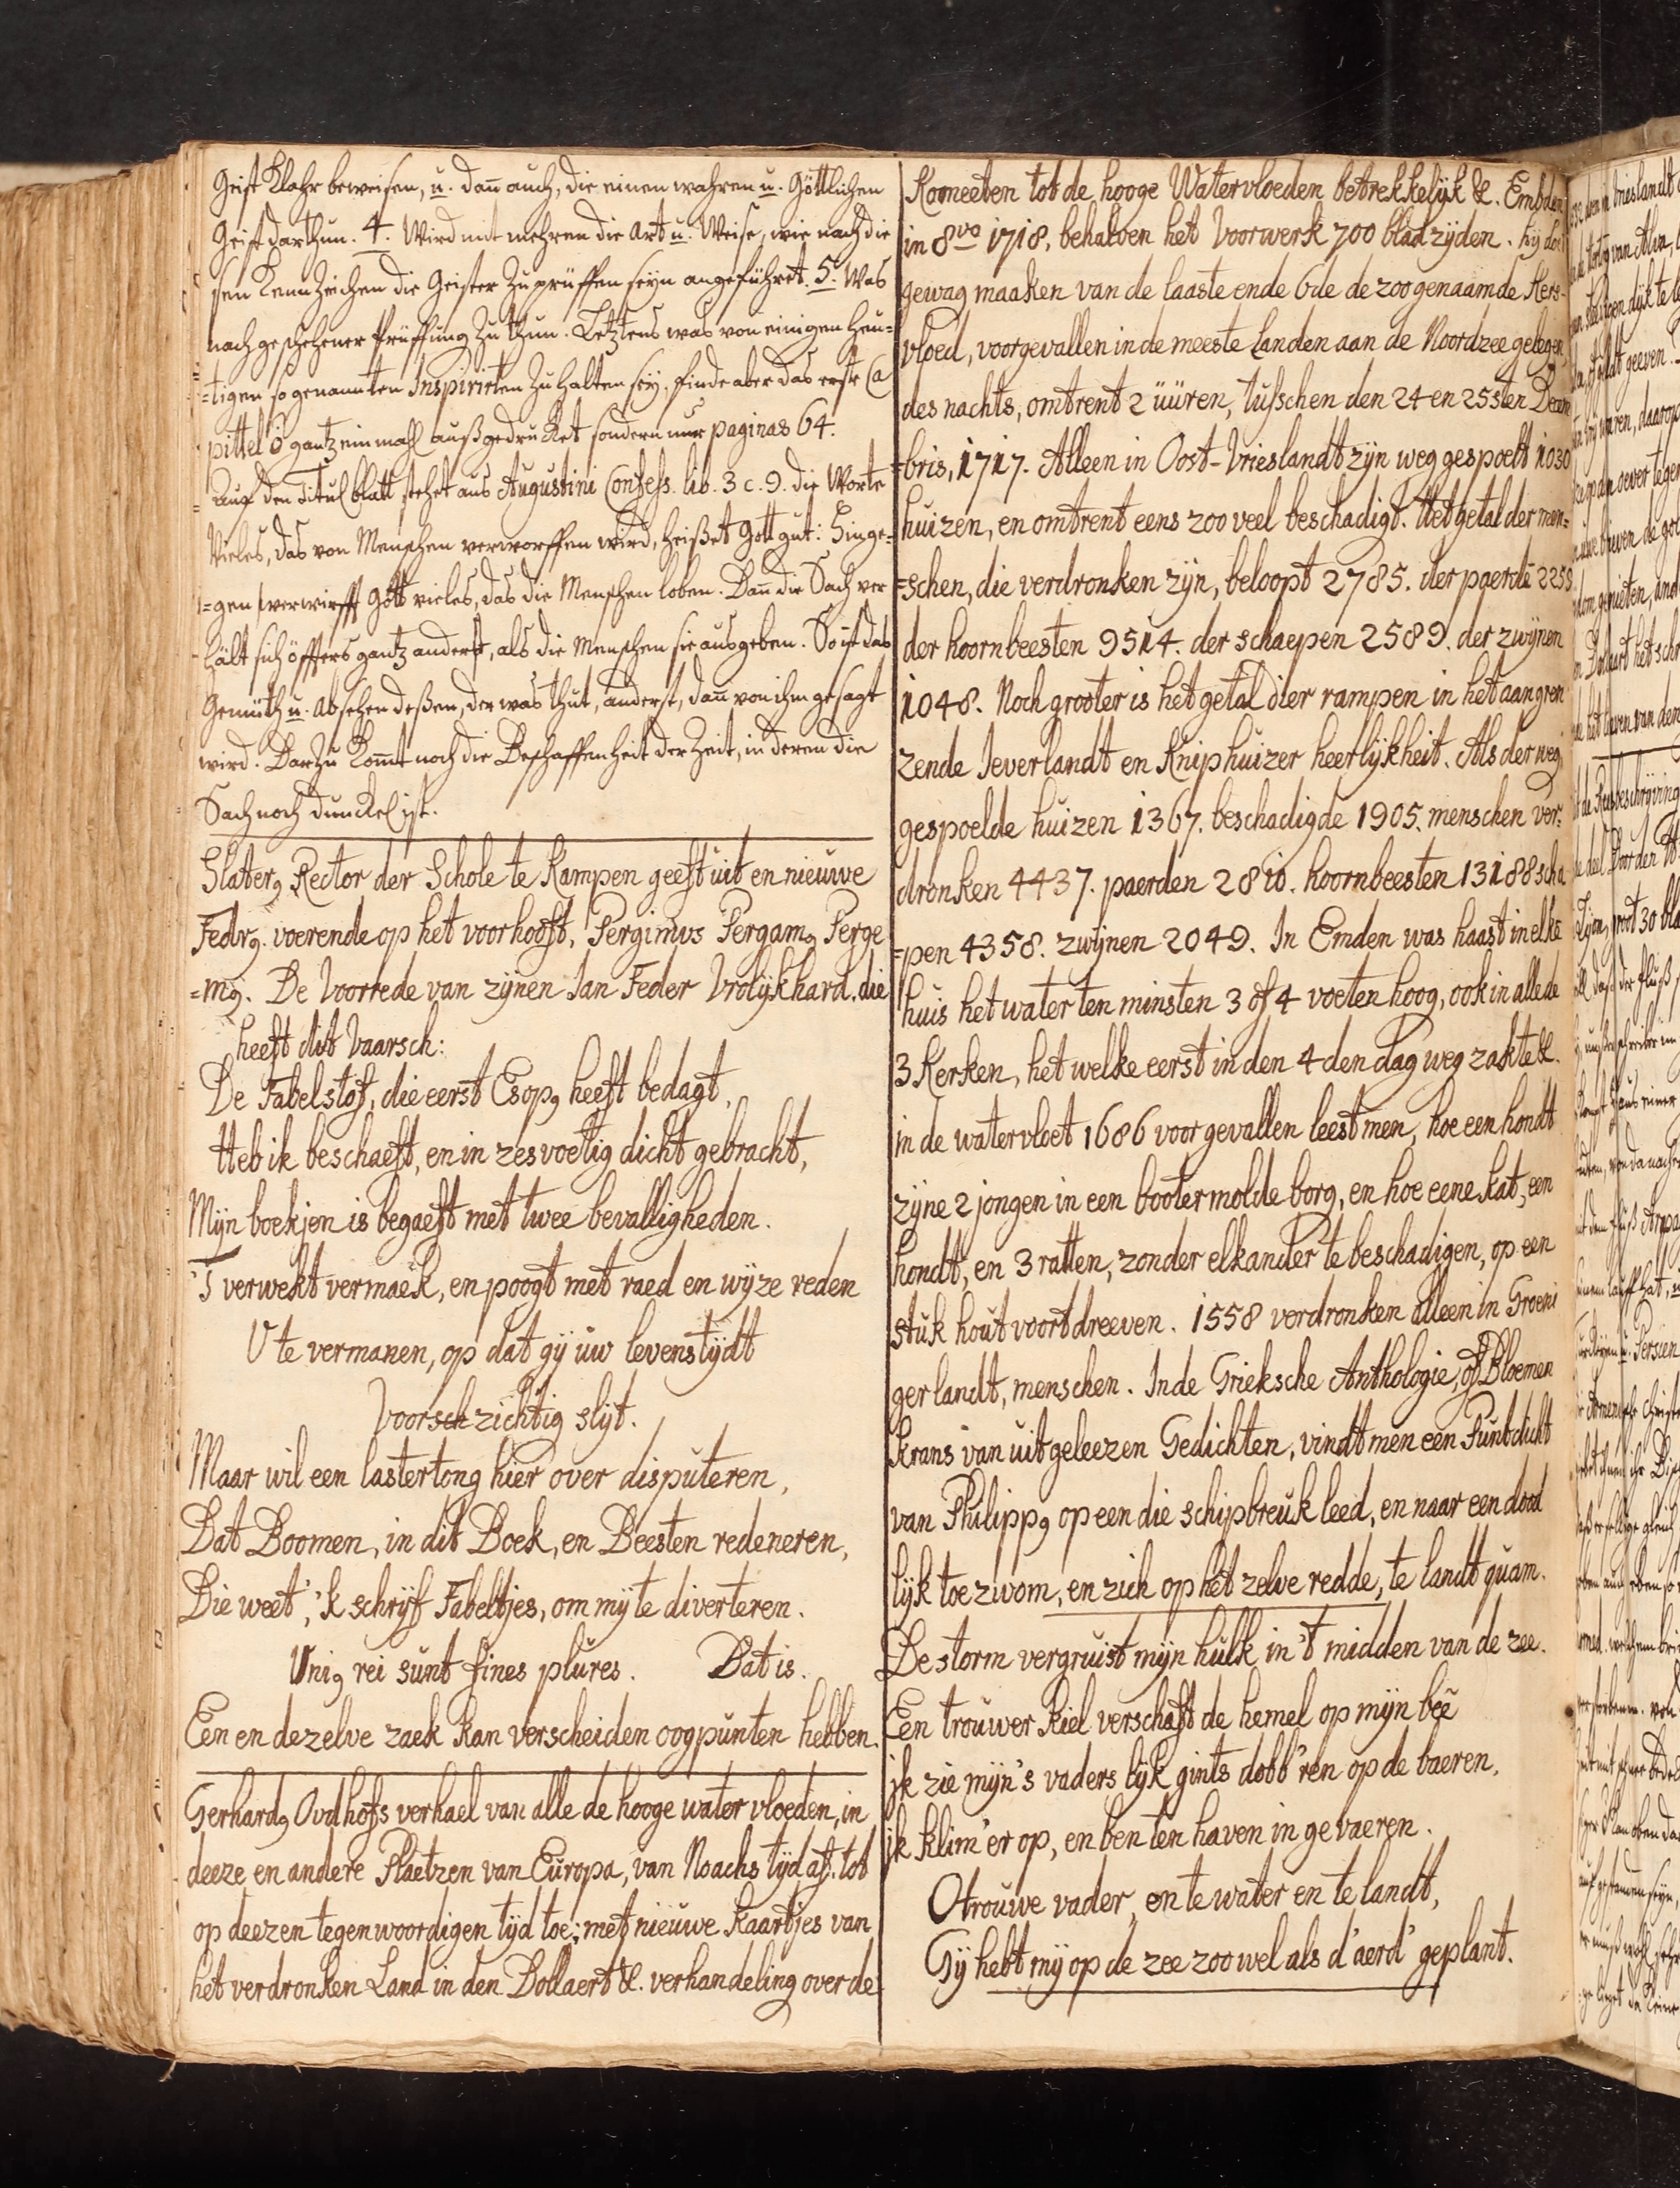 Geist klahr beweisen, u. dan̅ auch, die einen wahren u. Göttlichen
Geist darthun. 4. Wird mit mehren die Art u. Weise, wie nach die
sen Kennzeichen die Geister zu prüffen seyn angeführet. 5. Was
nach geschehener Prüffung zu thun. Letztens was von einigen heu=
=tigen so genannten Inspirirten zu halten sey. finde aber das erste Ca
pittel ö gantz ein mahl außgedruket sondern nur paginas 64.
Auf den Titul blatt stehet aus Augustini Confess. lib. 3 c. 9. die Worte
Vieles, das von Menschen verworffen wird, heißet Gott gut: Hinge=
=gen verwirfft Gott vieles, das die Menschen loben. Dan̅ die Sach ver
hält sich öffters gantz anderst, als die Menschen sie ausgeben. So ist das
Gemüth u. Absehen deßen, der was thut, anderst, dan̅ von ihm gesagt
wird. Darzu kom̅t noch die Beschaffenheit der Zeit, in deren die
Sach noch dunckel ist.
Slaterꝯ Rector der Schole te Kampen geeft uit en nieuwe
Fedrꝯ. voerende op het voorhooft, Pergimus Pergamꝯ Perge
=mꝯ. De Voorrede van zijnen Jan Feder Vrolijkhard, die
heeft dit Vaarsch:
De Fabelstof, die eerst Esopꝯ heeft bedagt,
Heb ik beschaeft, en in zesvoetig dicht gebracht,
Mijn boekjen is begaeft met twee bevalligheden.
'T verwekt vermaek, en poogt met raed en wijze reden
U te vermanen, op dat gij uw levenstijdt
Voorsch zichtig slijt.
Maar wil een lastertong hier over disputeren,
Dat Boomen, in dit Boek, en Beesten redeneren,
Die weet, 'k schrijf Fabeltjes, om mij te diverteren.
Uniꝯ rei sunt fines plures. Dat is.
Een en dezelve zaek kan verscheiden oogpunten hebben.
Gerhardꝯ Oudhofs verhael van alle de hooge water vloeden, in
deeze en andere Plaetzen van Europa, van Noachs tijd af, tot
op deezen tegenwoordigen tijd toe; met nieuwe Kaartjes van
het verdronken Land in den Dollaert &. verhandeling over de
Komeeten tot de hooge Watervloeden betrekkelijk &. Embden
in 8vo 1718, behalven het Voorwerk 700 bladzijden. hij doet
gewag maaken van de laaste ende 6de de zoogenaamde Kers-
vloed, voorgevallen in de meeste Landen aan de Noordzee gelegen
des nachts, omtrent 2 uuren, tusschen den 24 en 25sten Decem
=bris, 1717. Alleen in Oost-Vrieslandt zijn weg gespoelt 1030
huizen, en omtrent eens zoo veel beschadigt. Het getal der men=
=schen, die verdronken zijn, beloopt 2785. der paerde 2258
der hoornbeesten 9514. der schaepen 2589. der zwijnen
1048. Noch grooter is het getal dier rampen in het aangren
zende Jeverlandt en Kniphuizer heerlijkheit. Als der weg
gespoelde huizen 1367. beschadigde 1905. menschen ver=
dronken 4437. paerden 2810. hoornbeesten 13188 scha
=pen 4358. zwijnen 2049. In Emden was haast in elke
huis het water ten minsten 3 of 4 voeten hoog, ook in alle de
3 Kerken, het welke eerst in den 4den dag weg zakte &.
in de watervloet 1686 voorgevallen leest men, hoe een hondt
zijne 2 jongen in een booter molde borg, en hoe eene kat, een
hondt, en 3 ratten, zonder elkander te beschadigen, op een
stuk hout voort dreeven. 1558 verdronken alleen in Groeni
gerlandt, menschen. In de Grieksche Anthologie, of Bloemen
krans van uitgeleezen Gedichten, vindt men een Puntdicht
van Philippꝯ op een die schipbreuk leed, en naar een dood
lijk toe zwom, en zich op het zelve redde, te landt quam.
De storm vergruist mijn hulk in 't midden van de zee.
Een trouwer kiel verschaft de hemel op mijn beê
jk zie mijn's vaders lijk gints dobb'ren op de baeren,
jk klim 'er op, en ben ten haven in gevaeren.
O trouwe vader, en te water en te landt,
Gij hebt mij op de zee zoo wel als d' aerd' geplant.